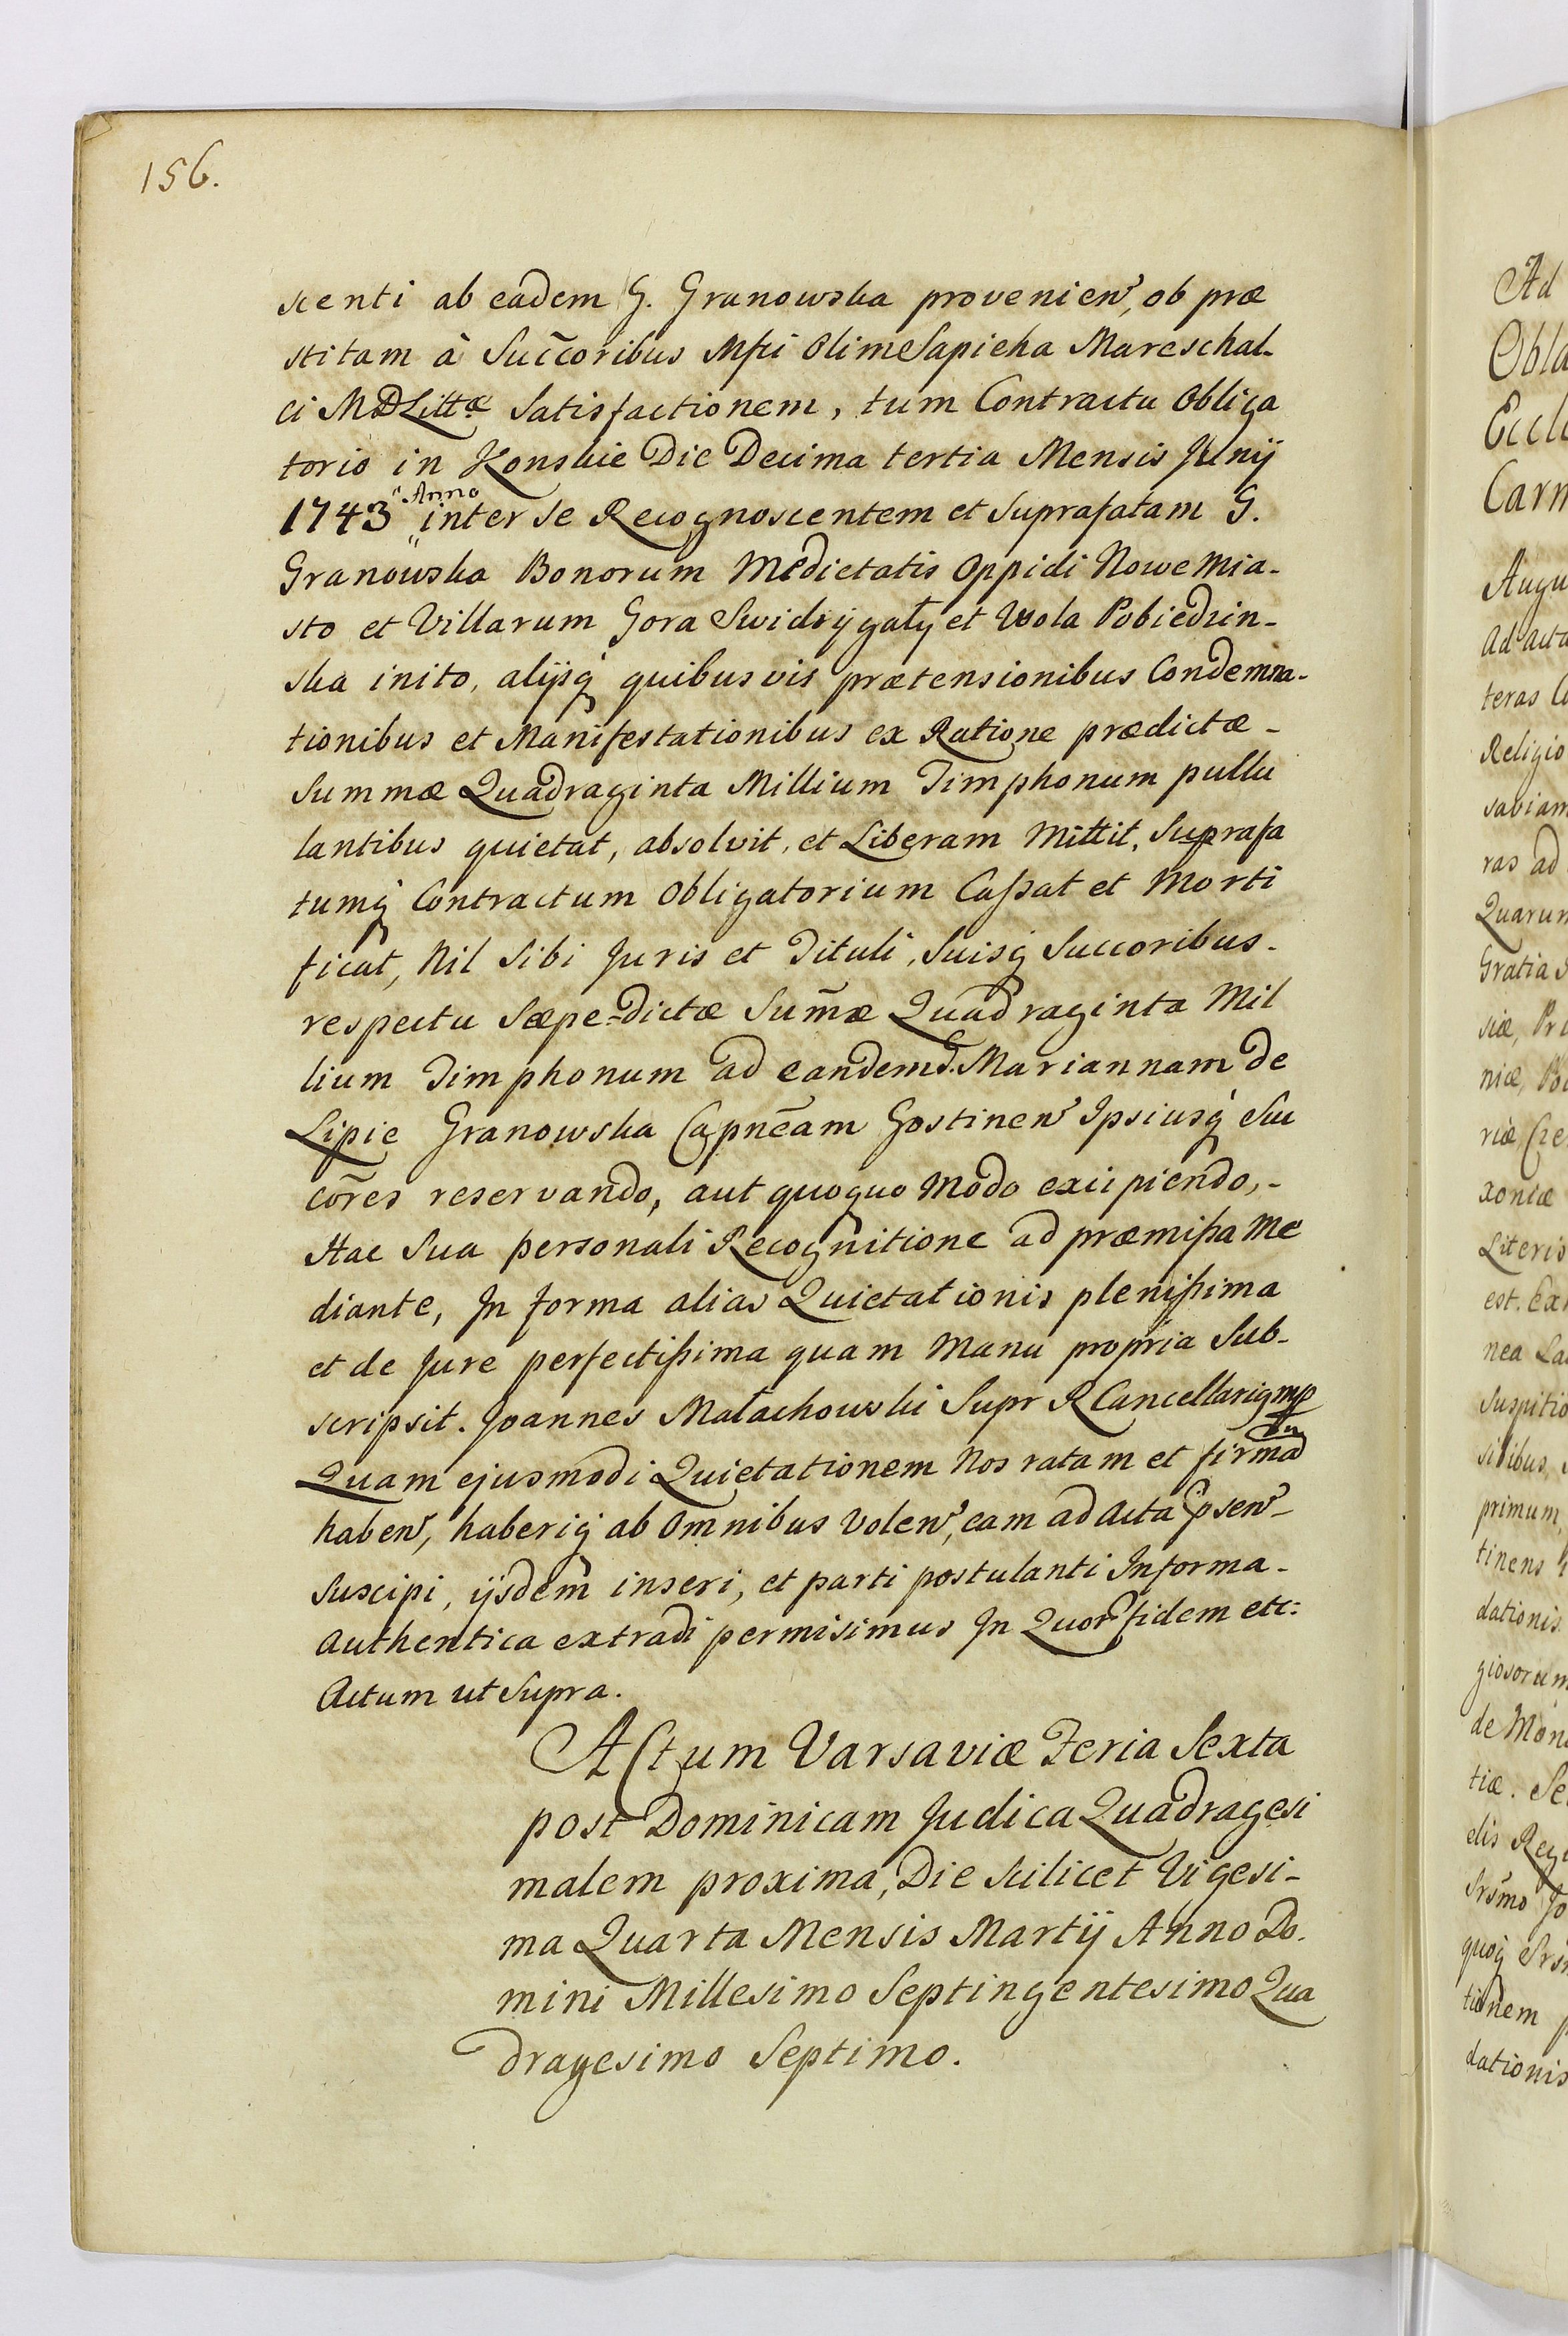 156.
scenti ab eadem G. Granowska provenien, ob præ
stitam à Succ̄oribus Mfci Olim Sapieha Mareschal-
ci MDLittæ Satisfactionem, tum Contractu Obliga
torio in Konskie Die Decima tertia Mensis Junij
Anno
1743 inter Se Recognoscentem et Suprafatam G.
Granowska Bonorum Medietatis Oppidi Nowe Mia-
sto et Villarum Gora Swidrygały et Wola Pobiedzin-
ska inito, alijsq quibusvis prætensionibus Condemna-
tionibus et Manifestationibus ex Ratione prædictæ -
Summæ Quadraginta Millium Timphonum pullu
lantibus quietat, absolvit, et Liberam Mittit, Suprafa
tumq Contractum Obligatorium Cassat et Morti
ficat, Nil Sibi Juris et Tituli, Suisq Succoribus -
respectu Sæpe-Dictæ Sum̄æ Quadraginta Mil
lium Timphonum ad eandem G. Mariannam de
Lipie Granowska Capnēam Gostinen Ipsiusq Suc
cōres reservando, aut quoquo Modo excipiendo, -
Hac Sua personali Recognitione ad præmissa Me
diante, In forma alias Quietationis plenissima
et de Jure perfectissima quam Manu propria Sub-
scripsit. Joannes Małachowski Supr R Cancellariq mp
Quam ejusmodi Quietationem Nos ratam et firmā
haben, haberiq ab Omnibus Volen, eam ad Acta psen -
Suscipi, ijsdem inseri, et parti postulanti Informa-
Authentica extradi permisimus In Quor fidem etc:
Actum ut Supra.
Actum Varsaviæ Feria Sexta
post Dominicam Judica Quadragesi
malem proxima, Die Scilicet Vigesi-
ma Quarta Mensis Martij Anno Do-
mini Millesimo Septingentesimo Qua
dragesimo Septimo.
Ad
Obla
Eccl
Carm
Augu
Ad acta
teras
Religio
saviam
ras ad
Quarum
Gratia
siæ, Pr
niæ,
riæ
xoniæ
Literis
est. Ex
nea La
Suspitio
sibilibus,
primum,
tinens
dationis
giosorum
de Mon
tiæ. Se
elis Reg
Srsmo Jo
quoq Srs
tionem
dationis